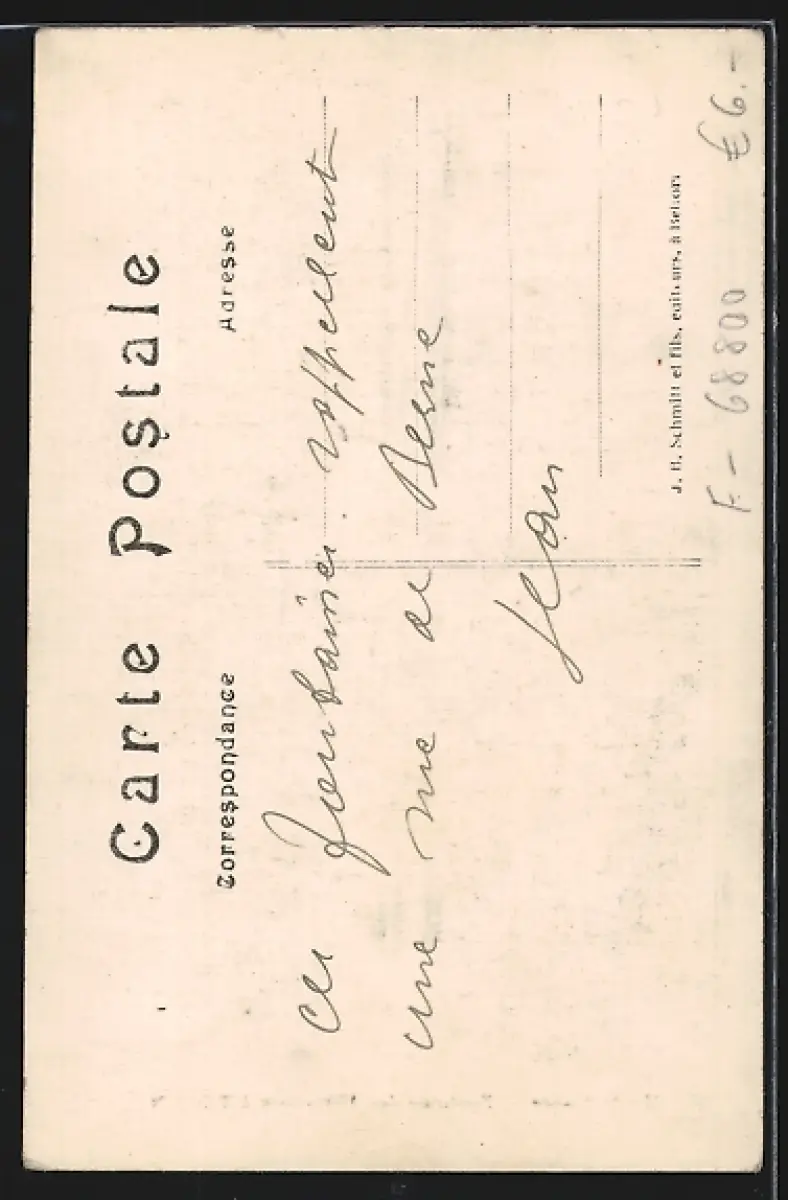 Carte Postale
Correspondance
Adresse
ces fontaines rappellent
une rue de Berne
Jean
J. B. Schmitt et fils, éditeurs, à Belfort
F - 68800 € 6.-